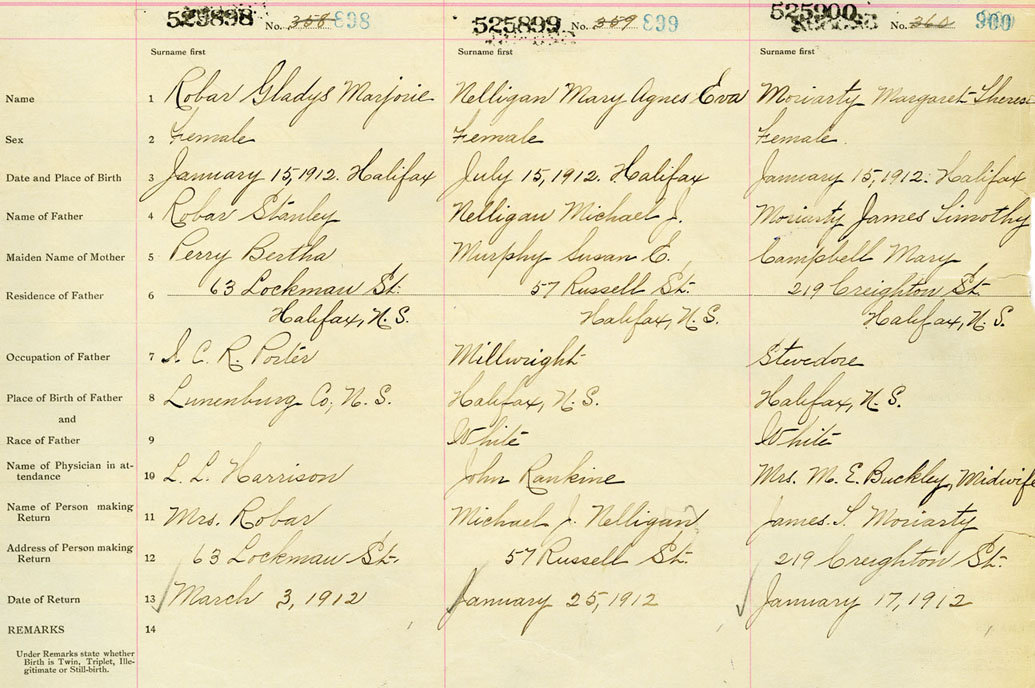 529898 No. 358 898
525899 No. 359 899
525900 No. 360 900
Surname first Surname first Surname first
Name 1 Robar Gladys Marjorie Nelligan Mary Agnes Eva Moriarty Margaret Theres
Sex 2 Female Female Female
Date and Place of Birth 3 January 15, 1912. Halifax July 15, 1912. Halifax January 15, 1912. Halifax
Name of Father 4 Robar Stanley Nelligan Michael J. Moriarty James Timothy
Maiden Name of Mother 5 Perry Bertha Murphy Susan E. Campbell Mary
Residence of Father 6 63 Lockman St. 57 Russell St. 219 Creighton St.
Halifax, N.S. Halifax, N.S. Halifax, N.S.
Occupation of Father 7 I. C. R. Porter Millwright Stevedore
Place of Birth of Father 8 Lunenburg Co; N.S. Halifax, N.S. Halifax, N.S.
and
Race of Father 9 White White
Name of Physician in at-
tendance 10 L. L. Harrison John Rankine Mrs. M. E. Buckley, Midwife
Name of Person making
Return 11 Mrs. Robar Michael J. Nelligan James. T. Moriarty
Address of Person making
Return 12 63 Lockman St. 57 Russell St. 219 Creighton St.
Date of Return 13 March 3, 1912 January 25, 1912 January 17, 1912
REMARKS 14
Under Remarks state whether
Birth is Twin, Triplet, Ille-
gitimate or Still-birth.